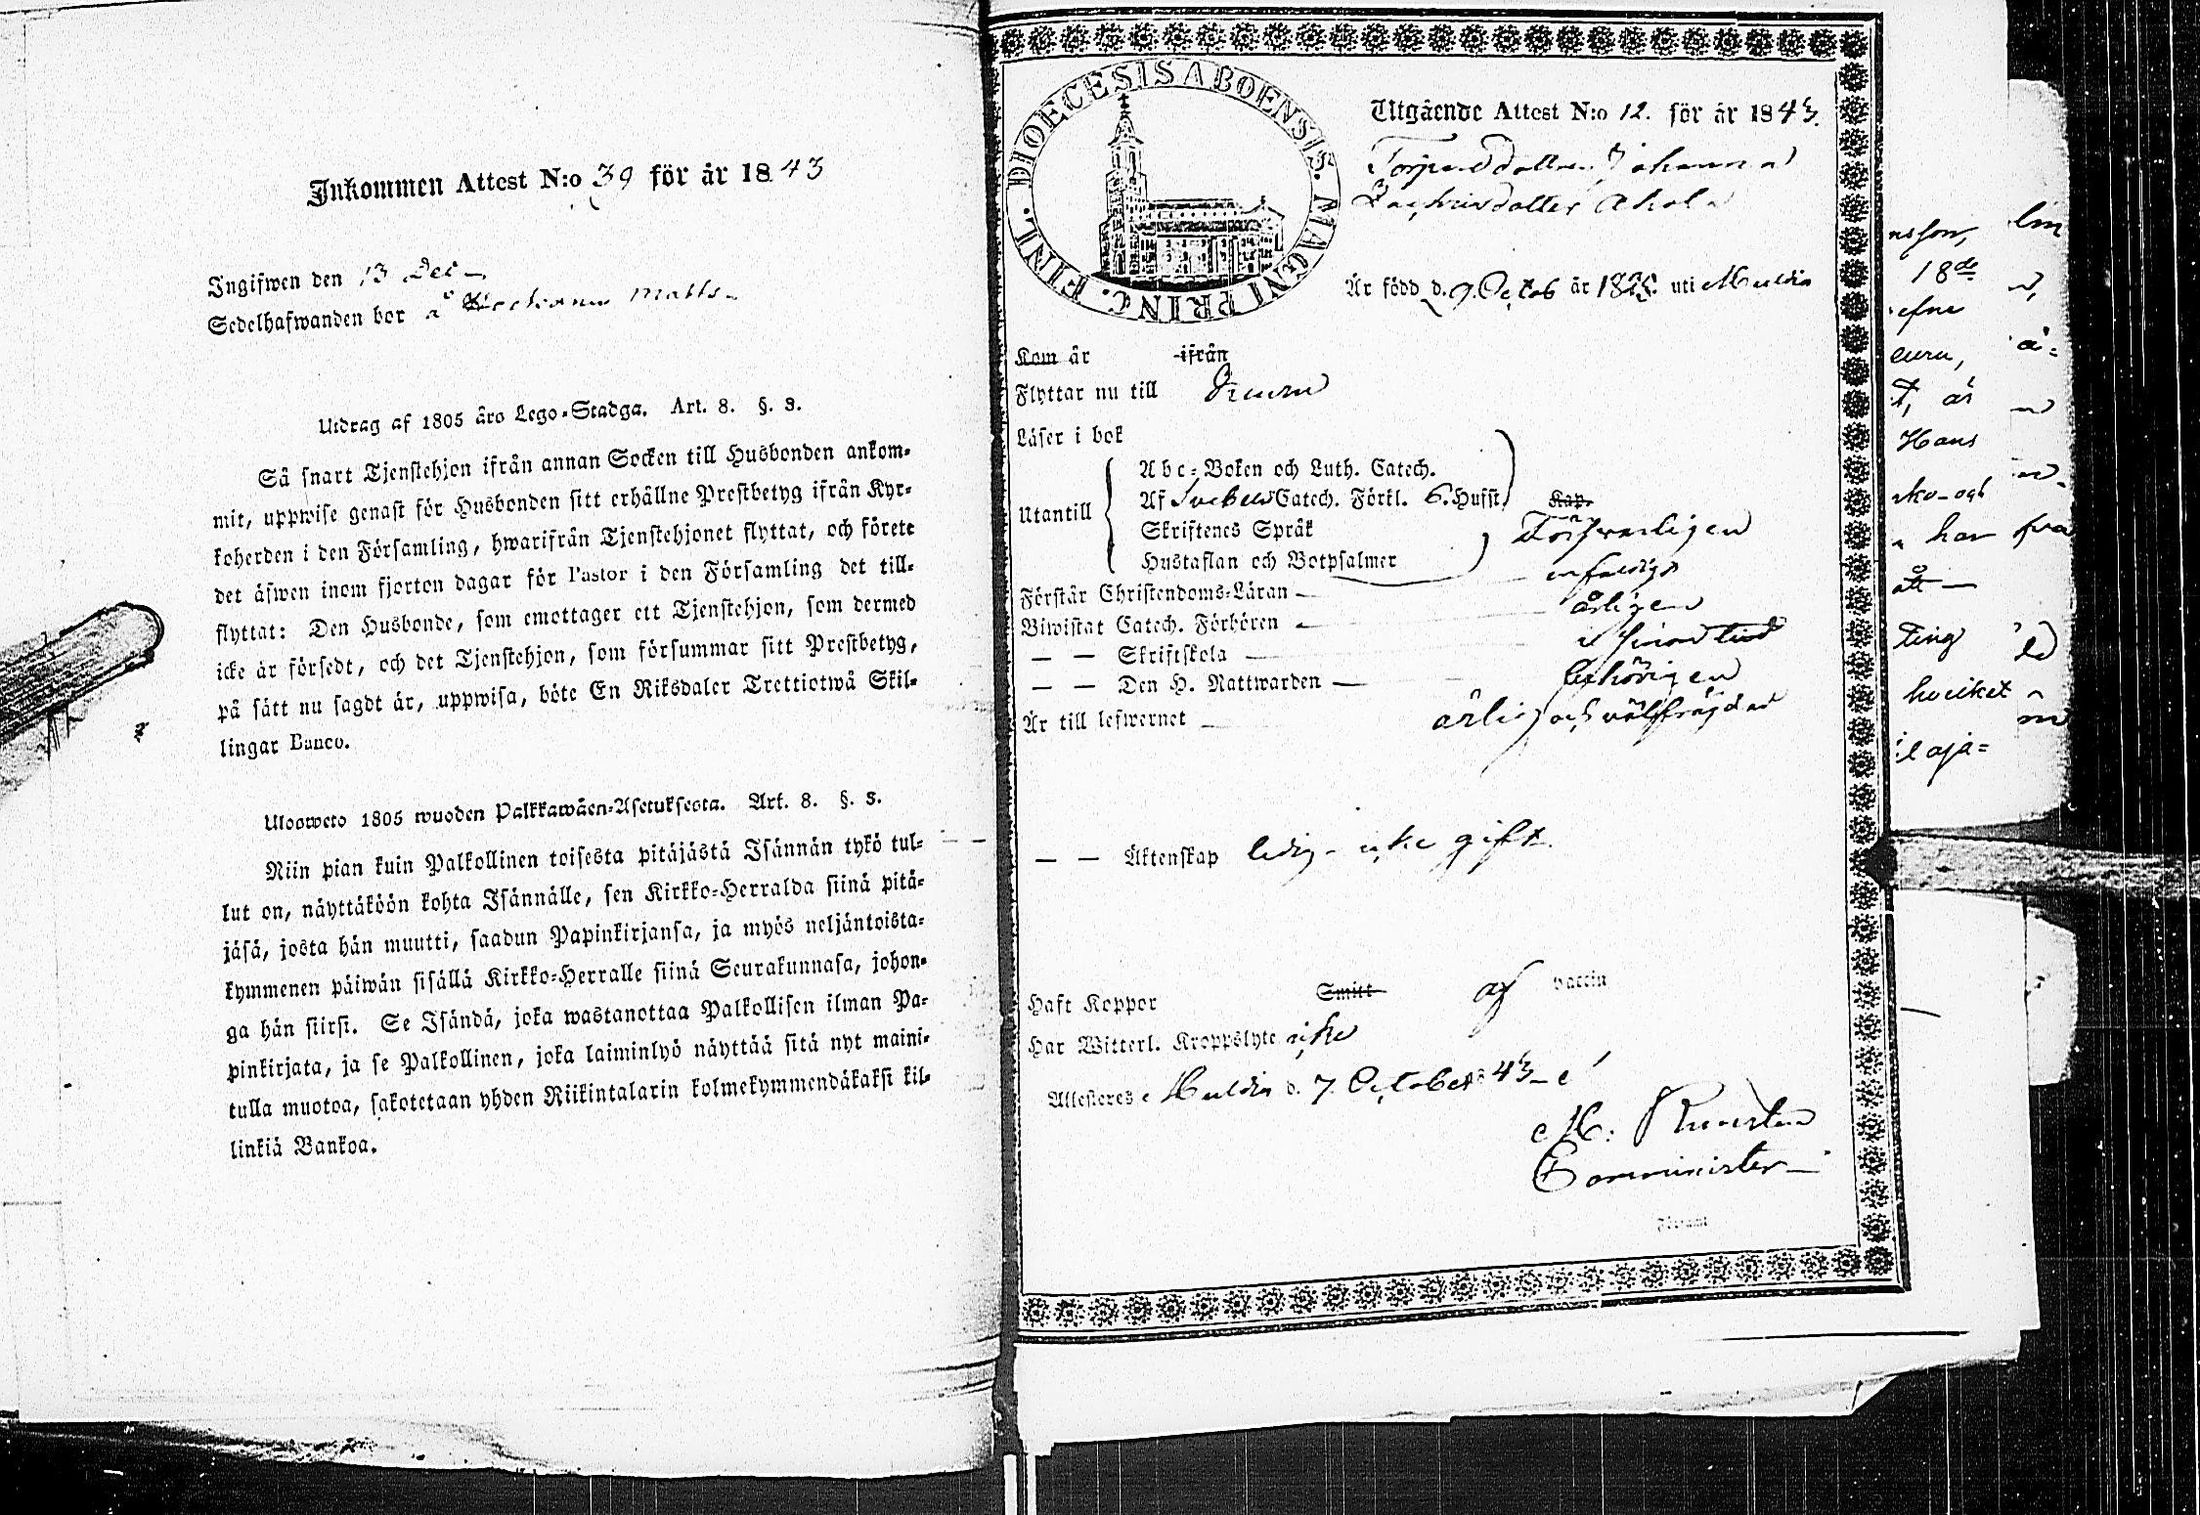 Inkommen Attest N:o 39 för år 1843
Ingifwen den 13 Dec
Sedelhafwanden bor å Matts
Utdrag af 1805 års Lego-Stadga. Art. 8. §. 3.
Så snart Tjenstehjon ifrån annan Socken till Husbonden ankom-
mit, uppwise genast för Husbonden sitt erhållne Prestbetyg ifrån Kyr-
koherden i den Församling, hwarifrån Tjenstehjonet flyttat, och förete
det äfwen inom fjorton dagar för Pastor i den Församling det till-
flyttat: Den Husbonde, som emottager ett Tjenstehjon, som dermed
icke är försedt, och det Tjenstehjon, som försummar sitt Prestbetyg,
på sätt nu sagdt är, uppwisa, böte En Riksdaler Trettiotwå Skil-
lingar Banco.
Uloosweto 1805 wuoden Palkkawäen-Asetuksesta. Art. 8. §. 3.
Niin pian kuin Palkollinen toisesta pitäjästä Isännän tykö tul-
lut on, näyttäköön kohta Isännälle, sen Kirkko-Herralda siinä pitä-
jäsä, josta hän muutti, saadun Papinkirjansa, ja myös neljäntoista-
kymmenen päiwän sisällä Kirkko-Herralle siinä Seurakunnasa, johon-
ga hän siirsi. Se Isändä, joka wastanottaa Palkollisen ilman Pa-
pinkirjata, ja se Palkollinen, joka laiminlyö näyttää sitä nyt maini-
tulla muotoa, sakotetaan yhden Riikintalarin kolmekymmendäkaksi kil-
linkiä Bankoa.
DIOECESIS ABOENSIS. MAGNI PRINC. FINL.
Utgående Attest N:o 12. för år 1843.
Johanna
dotter Ahola
Är född d. 9. Octob år uti Muldia
Kom år ifrån
Flyttar nu till
Läser i bok
Abc-Boken och Luth. Catech.
Utantill Af Svebelii Catech. Förkl. 6. Hufst. Kap.
Skriftenes Språk Försvarligen
Hustaflan och Botpsalmer
Förstår Christendoms-Läran enfaldigt
Biwistat Catech. Förhören årligen
— — Skriftskola i sinom tid
— — Den H. Nattwarden behörigen
Är till lefwernet ärlig och välfrägdad
— — Äktenskap ledig – icke gift.
Haft Koppor Smitt af vaccin
Har Witterl. Kroppslyte icke
Attesteres Muldia d. 7. October 43
M:
Comminister
nsson,
18de
efne
T, är
Hans
har
att —
ting
hvilket